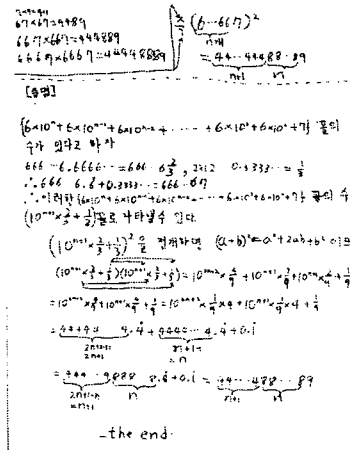 7×7=49
67×67=4489
667×667=444889
6667×6667=44448889
(6…667)²
n개
=44…4488…89
n+1 n
[증명]
{6×10ⁿ+6×10ⁿ⁻¹+6×10ⁿ⁻²+……+6×10²+6×10¹+7} 꼴의
수가 있다고 하자
666…6.6666…=666…6⅔, 0.3333…=⅓
∴666…6.6̇+0.3333…=666…67
∴이러한 {6×10ⁿ+6×10ⁿ⁻¹+6×10ⁿ⁻²…+6×10¹+7} 꼴의 수
(10ⁿ⁺¹×⅔+⅓)꼴로 나타낼수 있다.
(10ⁿ⁺¹×⅔+⅓)²을 전개하면 (a+b)²=a²+2ab+b² 이므로
(10ⁿ⁺¹×⅔+⅓)(10ⁿ⁺¹×⅔+⅓)=10²ⁿ⁺²×4/9+10ⁿ⁺¹×2/9+10ⁿ⁺¹×2/9+1/9
=10²ⁿ⁺²×4/9+10ⁿ⁺¹×4/9+1/9=10²ⁿ⁺²×1/9×4+10ⁿ⁺¹×1/9×4+1/9
=44…44…4.4̇+4444…4.4̇+0.1̇
=444…4888…8.8̇+0.1̇=44…488…89
n+1 n
-the end-